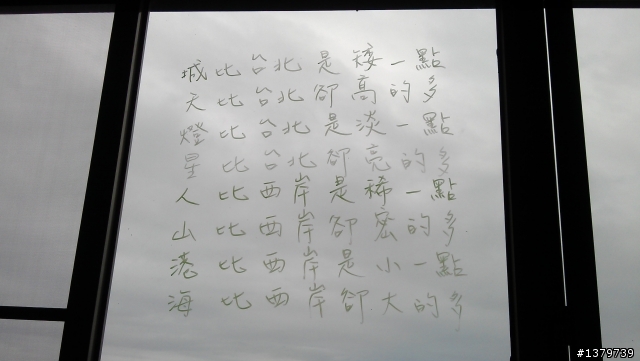 城比台北是矮一點
天比台北卻高的多
燈比台北是淡一點
星比台北卻亮的多
人比西岸是稀一點
山比西岸卻密的多
港比西岸是小一點
海比西岸卻大的多
#1379739